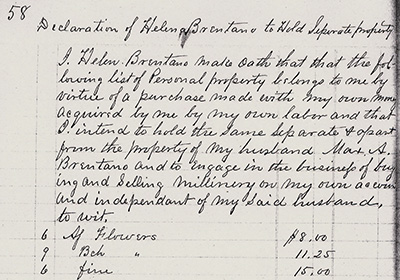 58
Declaration of Helena Brentano to Hold Seperate property
I. Helen. Brentano make Oath that that the fol-
lowing list of Personal property belongs to me by
virtue of a purchase made with my own money
acquired by me by my own labor and that
I intend to hold the same separate & apart
from the property of my husband Max. A.
Brentano and to engage in the business of buy
ing and Selling millinery on my own account
and independant of my said husband,
to wit,
6 Flowers $8.00
9 Bch " 11.25
6 fine 15.00